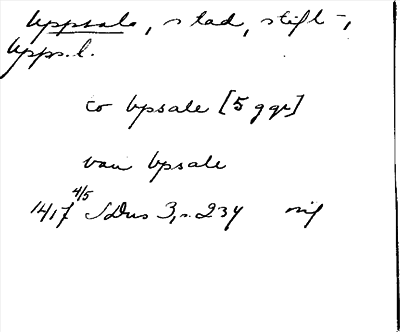 Uppsala, stad, stift-,
Upps. l.
co Vpsale [5 ggr]
van Vpsale
1417 4/5 SDns 3, s. 234 orig